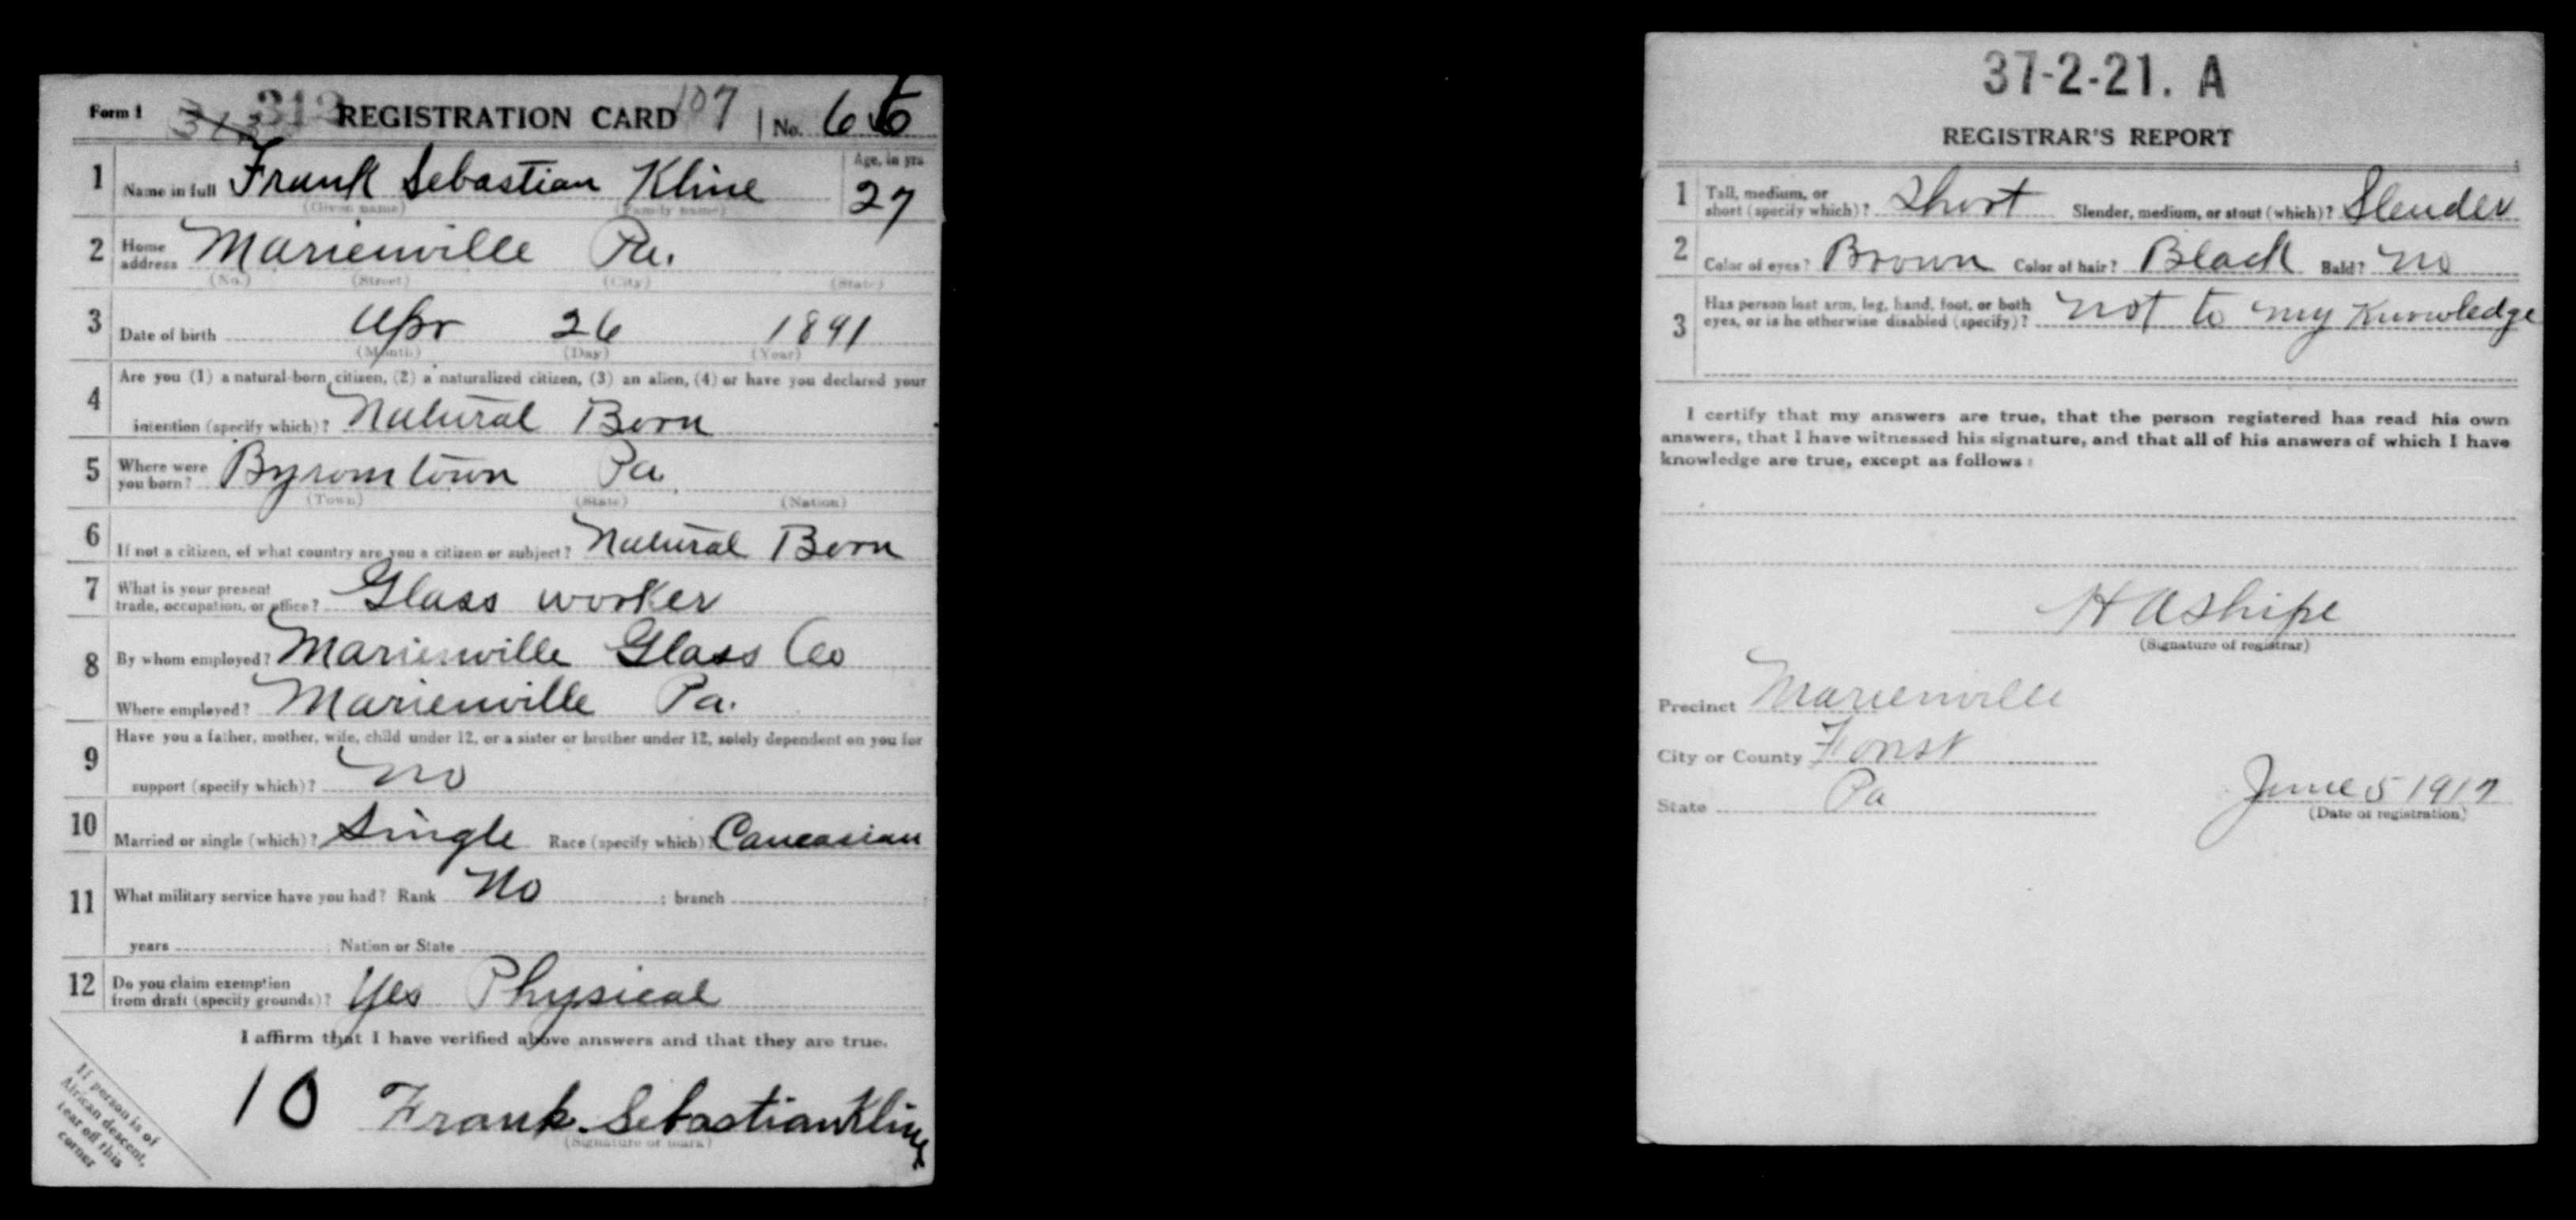 Form 1 313 312 REGISTRATION CARD 107 No.
1 Name in full Frank Sebastian Kline Age, in yrs 27
(Given name) (Family name)
2 Home address Marienville Pa.
(No.) (Street) (City) (State)
3 Date of birth Apr 26 1891
(Month) (Day) (Year)
4 Are you (1) a natural-born citizen, (2) a naturalized citizen, (3) an alien, (4) or have you declared your
intention (specify which)? Natural Born
5 Where were you born? Byromtown Pa
(Town) (State) (Nation)
6 If not a citizen, of what country are you a citizen or subject? Natural Born
7 What is your present trade, occupation, or office? Glass worker
8 By whom employed? Marienville Glass Co
Where employed? Marienville Pa.
9 Have you a father, mother, wife, child under 12, or a sister or brother under 12, solely dependent on you for
support (specify which)? No
10 Married or single (which)? Single Race (specify which)? Caucasian
11 What military service have you had? Rank No ; branch
years ; Nation or State
12 Do you claim exemption from draft (specify grounds)? Yes Physical
I affirm that I have verified above answers and that they are true.
10 Frank Sebastian Kline
(Signature or mark)
If person is of
African descent,
tear off this
corner
37-2-21. A
REGISTRAR'S REPORT
1 Tall, medium, or short (specify which)? Short Slender, medium, or stout (which)? Slender
2 Color of eyes? Brown Color of hair? Black Bald? No
3 Has person lost arm, leg, hand, foot, or both eyes, or is he otherwise disabled (specify)? Not to my Knowledge
I certify that my answers are true, that the person registered has read his own
answers, that I have witnessed his signature, and that all of his answers of which I have
knowledge are true, except as follows:
H A Shipe
(Signature of registrar)
Precinct Marienville
City or County Forest
State Pa
June 5 1917
(Date of registration)